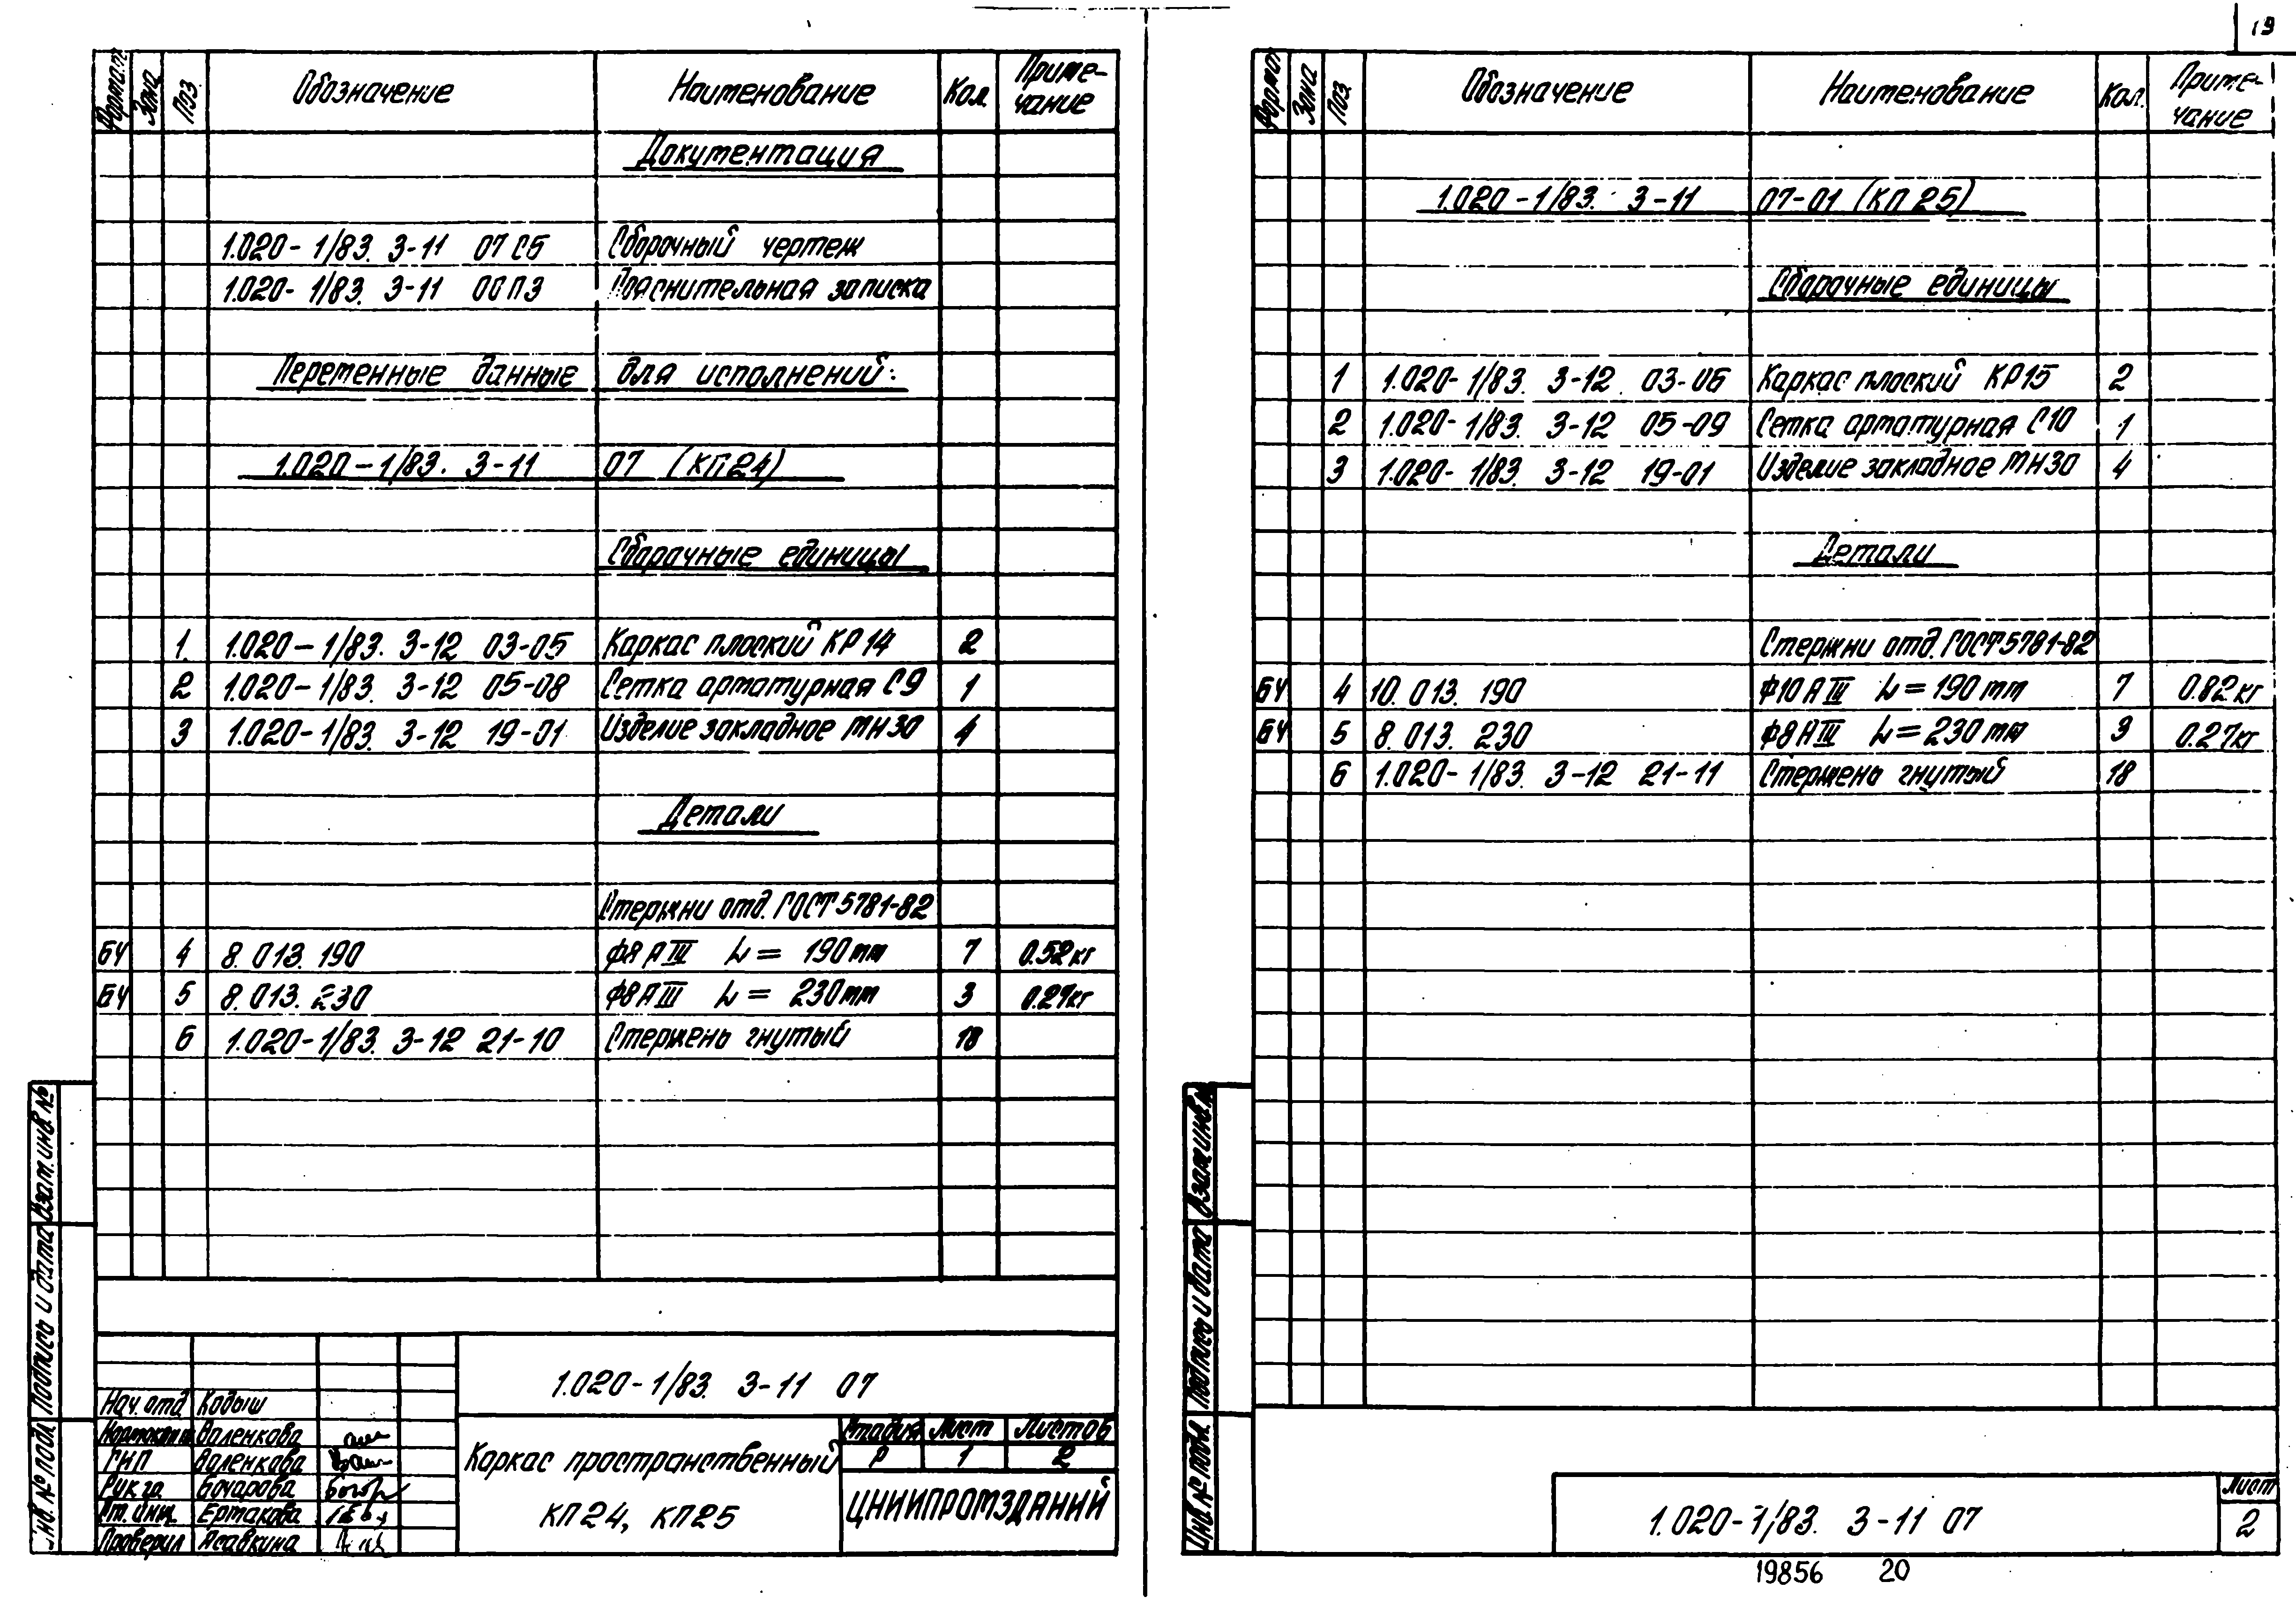 19
Формат Зона Поз. Обозначение Наименование Кол. Приме-
чание
Документация
1.020-1/83. 3-11 07 СБ Сборочный чертеж
1.020-1/83. 3-11 00 ПЗ Пояснительная записка
Переменные данные для исполнений:
1.020-1/83. 3-11 07 (КП24)
Сборочные единицы
1. 1.020-1/83. 3-12 03-05 Каркас плоский КР14 2
2 1.020-1/83. 3-12 05-08 Сетка арматурная С9 1
3 1.020-1/83. 3-12 19-01 Изделие закладное МН30 4
Детали
Стержни отд. ГОСТ 5781-82
БЧ 4 8. 013. 190 Ф8 АIII L = 190 мм 7 0.52 кг
БЧ 5 8. 013. 230 Ф8 АIII L = 230 мм 3 0.27 кг
6 1.020-1/83. 3-12 21-10 Стержень гнутый 18
Взам. инв. №
Подпись и дата
Инв. № подл.
1.020-1/83. 3-11 07
Нач. отд. Кодыш
Нормоконтр. Валенкова
ГИП Валенкова
Рук. гр. Бочарова
Ст. инж. Ермакова
Проверил Асавкина
Каркас пространственный
КП24, КП25
Стадия Лист Листов
Р 1 2
ЦНИИПРОМЗДАНИЙ
Формат Зона Поз. Обозначение Наименование Кол. Приме-
чание
1.020-1/83. 3-11 07-01 (КП 25)
Сборочные единицы
1 1.020-1/83. 3-12 03-06 Каркас плоский КР15 2
2 1.020-1/83. 3-12 05-09 Сетка арматурная С10 1
3 1.020-1/83. 3-12 19-01 Изделие закладное МН30 4
Детали
Стержни отд. ГОСТ 5781-82
БЧ 4 10. 013. 190 Ф10 АIII L = 190 мм 7 0.82 кг
БЧ 5 8. 013. 230 Ф8 АIII L = 230 мм 3 0.27 кг
6 1.020-1/83 3-12 21-11 Стержень гнутый 18
Взам. инв. №
Подпись и дата
Инв. № подл.
1.020-1/83. 3-11 07
Лист
2
19856 20